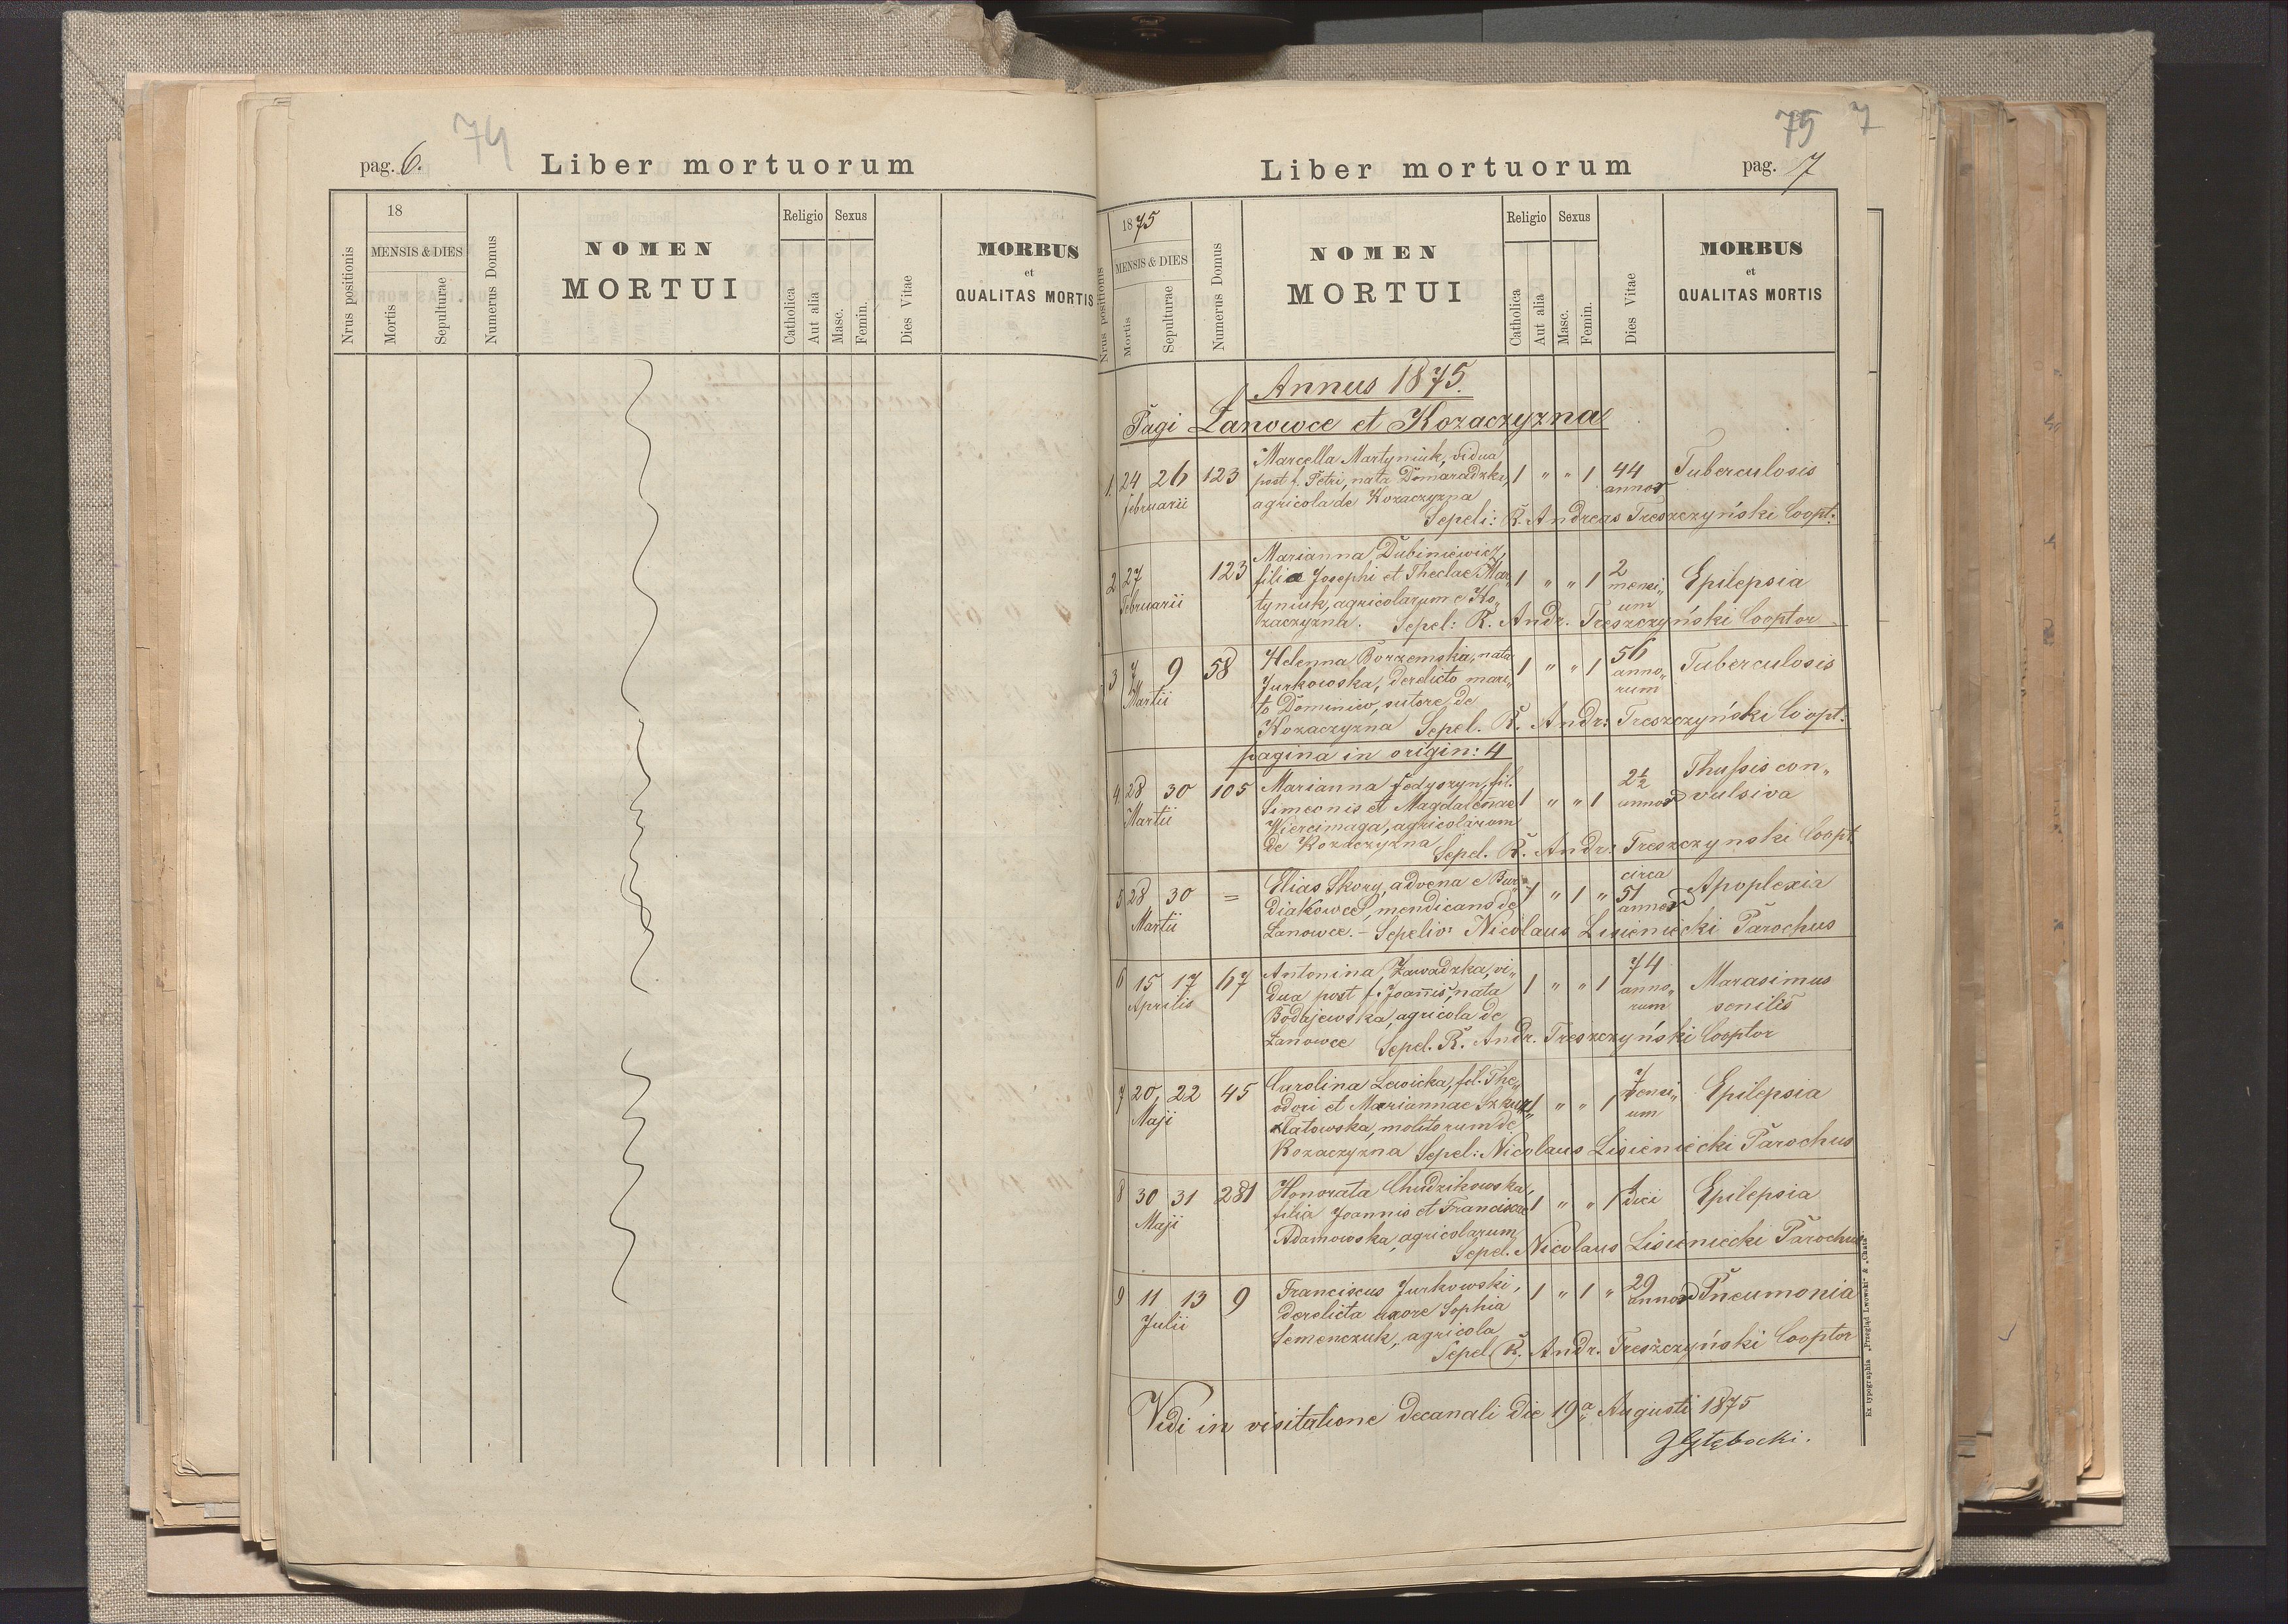 74
pag. 6.
Liber mortuorum
Nrus positionis
18
MENSIS & DIES
Mortis
Sepulturae
Numerus Domus
NOMEN
MORTUI
Religio
Catholica
Aut alia
Sexus
Masc.
Femin.
Dies Vitae
MORBUS
et
QUALITAS MORTIS
75 7
Liber mortuorum
pag. 7
Nrus positionis
1875
MENSIS & DIES
Mortis
Sepulturae
Numerus Domus
NOMEN
MORTUI
Religio
Catholica
Aut alia
Sexus
Masc.
Femin.
Dies Vitae
MORBUS
et
QUALITAS MORTIS
Annus 1875.
Pagi Łanowce et Kozaczyzna
1. 24 26 Februarii 123
Marcella Martyniuk, vidua
post f. Petri, nata Domaradzka,
agricola de Kozaczyzna
1 " " 1 44 annor Tuberculosis
Sepeli: R. Andreas Treszczyński Coopt:
2 27 Februarii 123
Marianna Dubiniewicz,
filia Josephi et Theclae Mar„
tyniuk, agricolarum e Ko„
zaczyzna.
1 " " 1 2 mensi„um Epilepsia
Sepel: R. Andr. Treszczyński Cooptor
3 7 9 Martii 58
Helenna Borzemska, nata
Jurkowska, derelicto mari„
to Dominico, sutore, de
Kozaczyzna
1 " " 1 56 anno„rum Tuberculosis
Sepel. R. Andr: Treszczyński Coopt.
pagina in origin: 4
4 28 30 Martii 105
Marianna Fedyszyn, fil.
Simeonis et Magdalenae
Wiercimaga, agricolarum
de Kozaczyzna
1 " " 1 2½ annor Thussis con„
vulsiva
Sepel. R. Andr: Treszczynski Coopt.
5 28 30 Martii =
Elias Skory, advena e Bur„
diakowce, mendicans de
Łanowce. –
1 " 1 " circa 51 annor Apoplexia
Sepeliv: Nicolaus Lisieniecki Parochus
6 15 17 Aprilis 67
Antonina Zawadzka, vi„
dua post f. Joannis, nata
Bodajewska, agricola de
Łanowce
1 " " 1 74 anno„rum Marasimus
senilis
Sepel. R. Andr. Treszczyński Cooptor
7 20, 22 Maji 45
Carolina Lewicka, fil. The„
odori et Mariannae
molitorum de
Kozaczyzna
1 " " 1 7 mensi„um Epilepsia
Sepel: Nicolaus Lisieniecki Parochus
8 30 31 Maji 281
Honorata Chudzikowska,
filia Joannis et Franciscae
Adamowska, agricolarum
1 " " 1 1 diei Epilepsia
Sepel. Nicolaus Lisieniecki Parochus
9 11 13 Julii 9
Franciscus Jurkowski,
derelicta uxore Sophia
Semenczuk, agricola
1 " 1 " 29 annor Pneumonia
Sepel. R. Andr. Treszczyński Cooptor
Vidi in visitatione decanali die 19a Augusti 1875
JGłębocki.
Ex typographia „Przegląd Lwowski“ & „Chata“